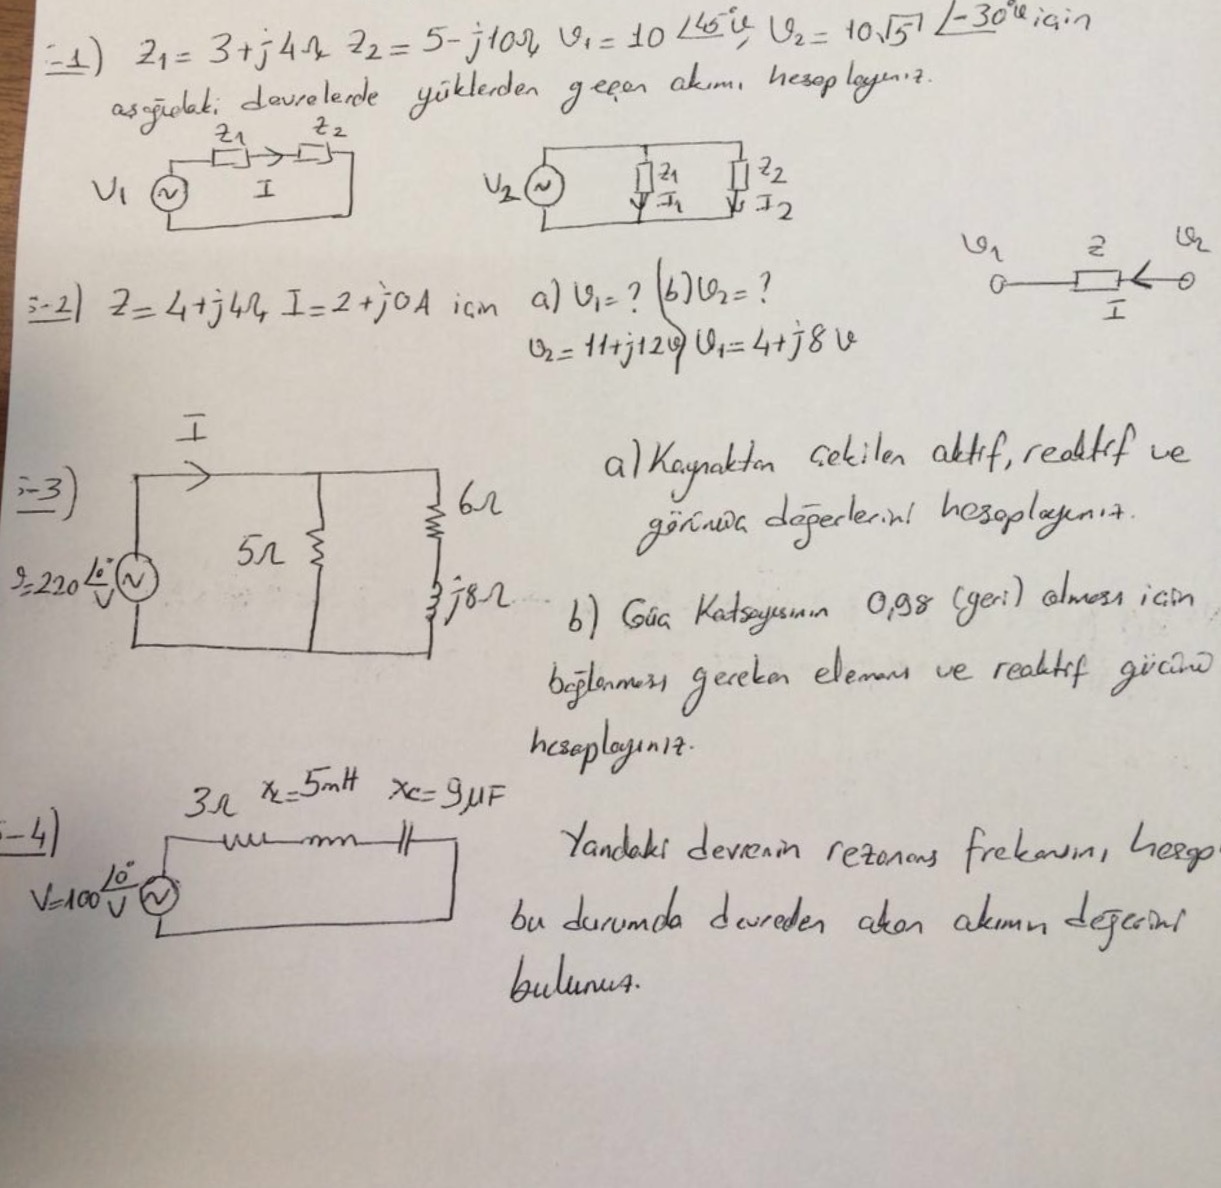 -1) Z1 = 3+j4Ω Z2 = 5-j10Ω V1 = 10∠45°V, V2 = 10√5∠-30°V için
aşağıdaki devrelerde yüklerden geçen akımı hesaplayınız.
Z1 Z2
V1 I
V2 Z1 Z2
I1 I2
V1 Z V2
I
-2) Z = 4+j4Ω, I = 2+j0A için a) V1 = ? (b) V2 = ?
V2 = 11+j12V) V1 = 4+j8 V
I
-3)
6Ω
5Ω
=220∠0° V
j8Ω
a) Kaynaktan çekilen aktif, reaktif ve
görünüş değerlerini hesaplayınız.
b) Güç Katsayısının 0,98 (geri) olması için
bağlanması gereken elemanı ve reaktif gücünü
hesaplayınız.
3Ω XL=5mH XC=9µF
-4)
V=100∠0° V
Yandaki devrenin rezonans frekansını, hesap
bu durumda devreden akan akımın değerini
bulunuz.